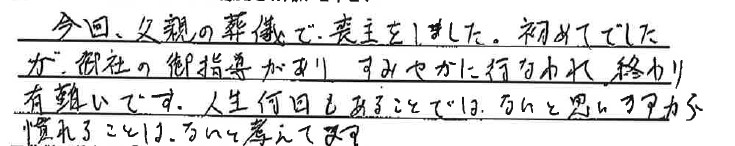 今回、父親の葬儀で、喪主をしました。初めてでした
が、御社の御指導があり すみやかに行なわれ 終わり
有難いです。人生何回もあることでは、ないと思いますから
慣れることは、ないと考えてます